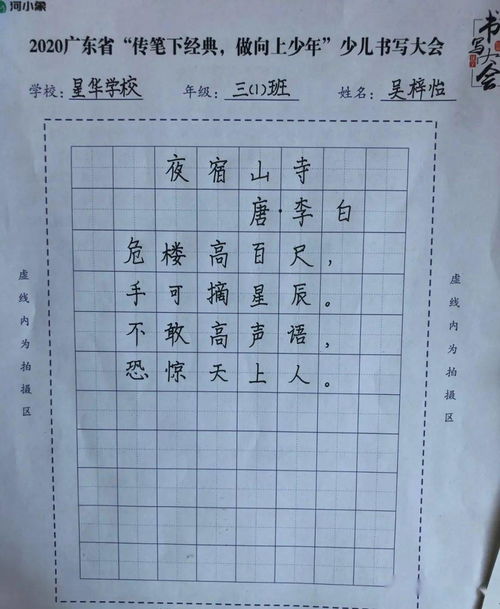 河小象
书写大会
2020广东省“传笔下经典，做向上少年”少儿书写大会
学校：星华学校 年级：三(1)班 姓名：吴梓怡
夜宿山寺
唐·李白
危楼高百尺，
手可摘星辰。
不敢高声语，
恐惊天上人。
虚线内为拍摄区
虚线内为拍摄区